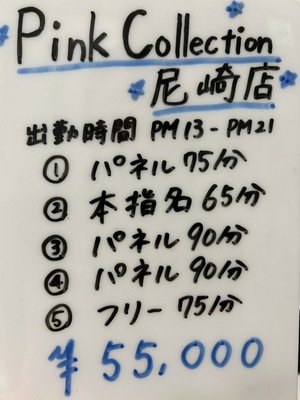 Pink Collection
尼崎店
出勤時間 PM13-PM21
① パネル 75分
② 本指名 65分
③ パネル 90分
④ パネル 90分
⑤ フリー 75分
¥55,000